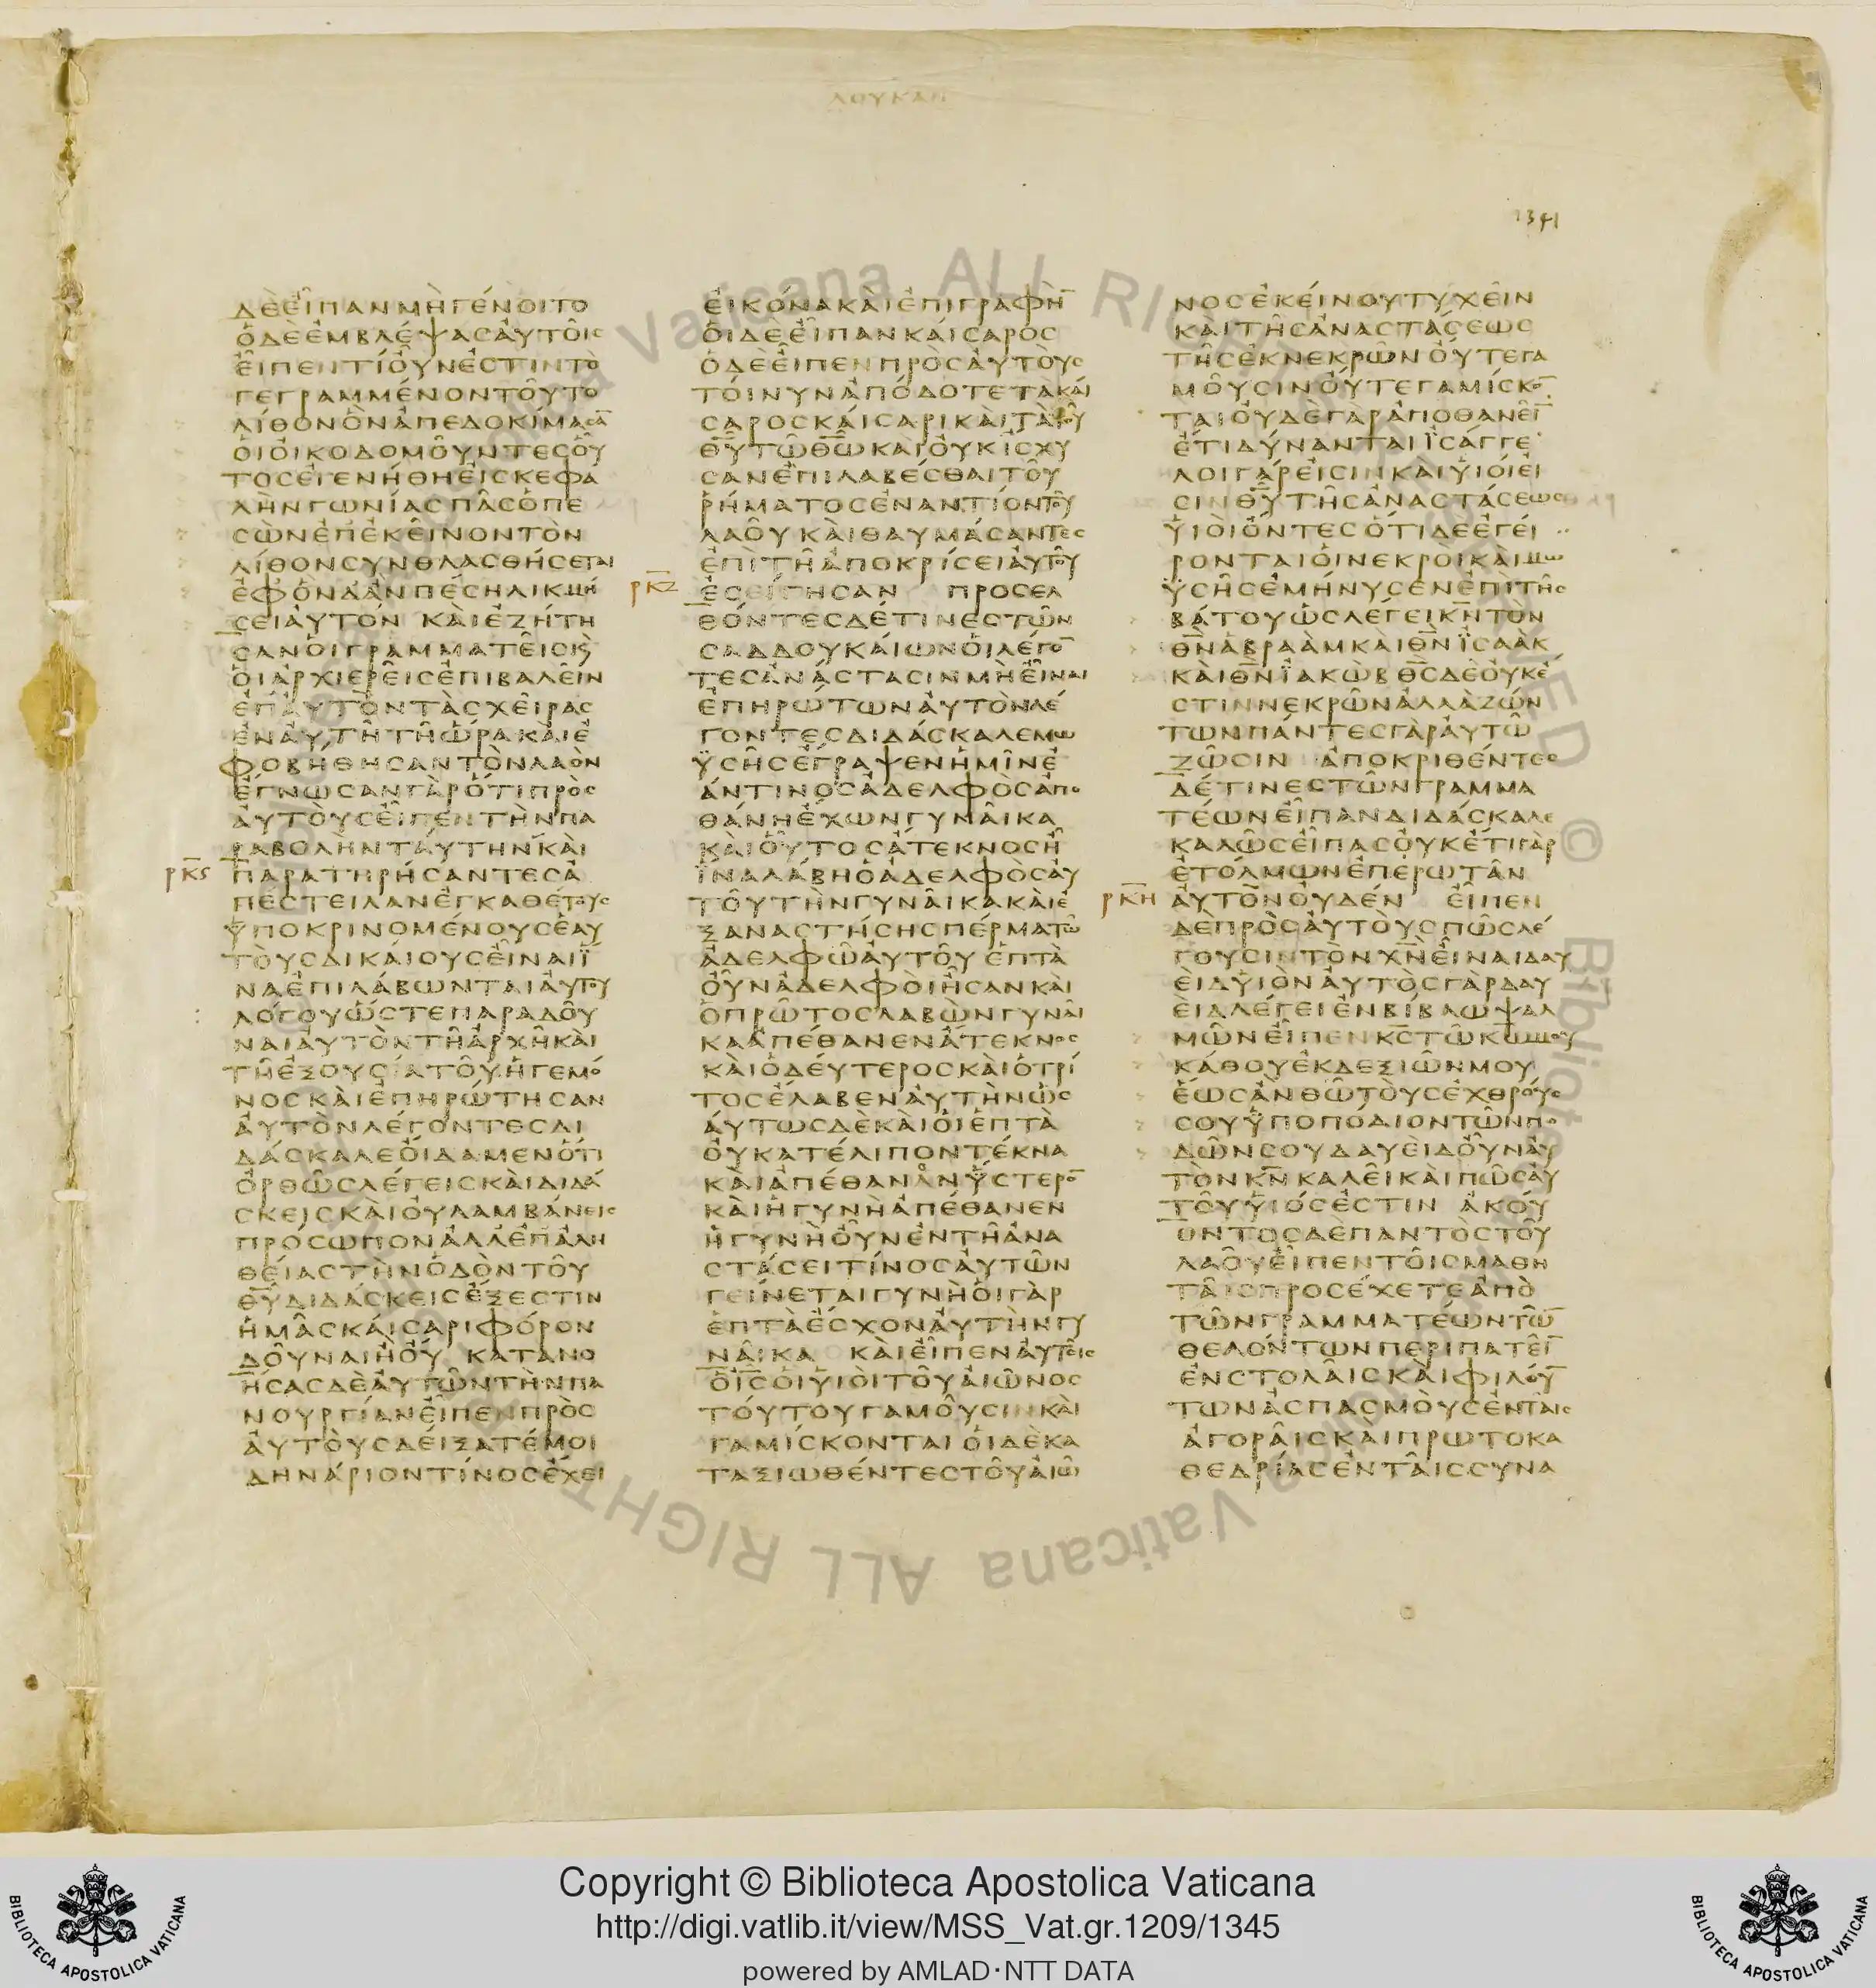 ΛΟΥΚΑΝ
1341
ΔΕΕΙΠΑΝΜΗΓΕΝΟΙΤΟ
ΟΔΕΕΜΒΛΕΨΑΣΑΥΤΟΙΣ
ΕΙΠΕΝΤΙΟΥΝΕΣΤΙΝΤΟ
ΓΕΓΡΑΜΜΕΝΟΝΤΟΥΤΟ
ΛΙΘΟΝΟΝΑΠΕΔΟΚΙΜΑΣΑ̅
ΟΙΟΙΚΟΔΟΜΟΥΝΤΕΣΟΥ
ΤΟΣΕΓΕΝΗΘΗΕΙΣΚΕΦΑ
ΛΗΝΓΩΝΙΑΣΠΑΣΟΠΕ
ΣΩΝΕΠΕΚΕΙΝΟΝΤΟΝ
ΛΙΘΟΝΣΥΝΘΛΑΣΘΗΣΕΤΑΙ
ΕΦΟΝΔΑΝΠΕΣΗΛΙΚΜΗ
ΣΕΙΑΥΤΟΝ ΚΑΙΕΖΗΤΗ
ΣΑΝΟΙΓΡΑΜΜΑΤΕΙΣΚ
ΟΙΑΡΧΙΕΡΕΙΣΕΠΙΒΑΛΕΙΝ
ΕΠΑΥΤΟΝΤΑΣΧΕΙΡΑΣ
ΕΝΑΥΤΗΤΗΩΡΑΚΑΙΕ
ΦΟΒΗΘΗΣΑΝΤΟΝΛΑΟΝ
ΕΓΝΩΣΑΝΓΑΡΟΤΙΠΡΟΣ
ΑΥΤΟΥΣΕΙΠΕΝΤΗΝΠΑ
ΡΑΒΟΛΗΝΤΑΥΤΗΝΚΑΙ
ρκς ΠΑΡΑΤΗΡΗΣΑΝΤΕΣΑ
ΠΕΣΤΕΙΛΑΝΕΓΚΑΘΕΤΟΥΣ
ΥΠΟΚΡΙΝΟΜΕΝΟΥΣΕΑΥ
ΤΟΥΣΔΙΚΑΙΟΥΣΕΙΝΑΙΪ
ΝΑΕΠΙΛΑΒΩΝΤΑΙΑΥΤΟΥ
ΛΟΓΟΥΩΣΤΕΠΑΡΑΔΟΥ
ΝΑΙΑΥΤΟΝΤΗΑΡΧΗΚΑΙ
ΤΗΕΞΟΥΣΙΑΤΟΥΗΓΕΜΟ
ΝΟΣΚΑΙΕΠΗΡΩΤΗΣΑΝ
ΑΥΤΟΝΛΕΓΟΝΤΕΣΔΙ
ΔΑΣΚΑΛΕΟΙΔΑΜΕΝΟΤΙ
ΟΡΘΩΣΛΕΓΕΙΣΚΑΙΔΙΔΑ
ΣΚΕΙΣΚΑΙΟΥΛΑΜΒΑΝΕΙΣ
ΠΡΟΣΩΠΟΝΑΛΛΕΠΑΛΗ
ΘΕΙΑΣΤΗΝΟΔΟΝΤΟΥ
Θ̅Υ̅ΔΙΔΑΣΚΕΙΣΕΞΕΣΤΙΝ
ΗΜΑΣΚΑΙΣΑΡΙΦΟΡΟΝ
ΔΟΥΝΑΙΗΟΥ ΚΑΤΑΝΟ
ΗΣΑΣΔΕΑΥΤΩΝΤΗΝΠΑ
ΝΟΥΡΓΙΑΝΕΙΠΕΝΠΡΟΣ
ΑΥΤΟΥΣΔΕΙΞΑΤΕΜΟΙ
ΔΗΝΑΡΙΟΝΤΙΝΟΣΕΧΕΙ
ΕΙΚΟΝΑΚΑΙΕΠΙΓΡΑΦΗ̅
ΟΙΔΕΕΙΠΑΝΚΑΙΣΑΡΟΣ
ΟΔΕΕΙΠΕΝΠΡΟΣΑΥΤΟΥΣ
ΤΟΙΝΥΝΑΠΟΔΟΤΕΤΑΚΑΙ
ΣΑΡΟΣΚΑΙΣΑΡΙΚΑΙΤΑΤΟΥ
Θ̅Υ̅ΤΩΘ̅Ω̅ΚΑΙΟΥΚΙΣΧΥ
ΣΑΝΕΠΙΛΑΒΕΣΘΑΙΤΟΥ
ΡΗΜΑΤΟΣΕΝΑΝΤΙΟΝΤΟΥ
ΛΑΟΥΚΑΙΘΑΥΜΑΣΑΝΤΕΣ
ΕΠΙΤΗΑΠΟΚΡΙΣΕΙΑΥΤΟΥ
ρκζ ΕΣΕΙΓΗΣΑΝ ΠΡΟΣΕΛ
ΘΟΝΤΕΣΔΕΤΙΝΕΣΤΩΝ
ΣΑΔΔΟΥΚΑΙΩΝΟΙΛΕΓΟ̅
ΤΕΣΑΝΑΣΤΑΣΙΝΜΗΕΙΝΑΙ
ΕΠΗΡΩΤΩΝΑΥΤΟΝΛΕ
ΓΟΝΤΕΣΔΙΔΑΣΚΑΛΕΜΩ
ΫΣΗΣΕΓΡΑΨΕΝΗΜΙΝΕ
ΑΝΤΙΝΟΣΑΔΕΛΦΟΣΑΠΟ
ΘΑΝΗΕΧΩΝΓΥΝΑΙΚΑ
ΚΑΙΟΥΤΟΣΑΤΕΚΝΟΣΗ
ΪΝΑΛΑΒΗΟΑΔΕΛΦΟΣΑΥ
ΤΟΥΤΗΝΓΥΝΑΙΚΑΚΑΙΕ
ΞΑΝΑΣΤΗΣΗΣΠΕΡΜΑΤΩ
ΑΔΕΛΦΩΑΥΤΟΥ ΕΠΤΑ
ΟΥΝΑΔΕΛΦΟΙΗΣΑΝΚΑΙ
ΟΠΡΩΤΟΣΛΑΒΩΝΓΥΝΑΙ
ΚΑΑΠΕΘΑΝΕΝΑΤΕΚΝΟΣ
ΚΑΙΟΔΕΥΤΕΡΟΣΚΑΙΟΤΡΙ
ΤΟΣΕΛΑΒΕΝΑΥΤΗΝΩΣ
ΑΥΤΩΣΔΕΚΑΙΟΙΕΠΤΑ
ΟΥΚΑΤΕΛΙΠΟΝΤΕΚΝΑ
ΚΑΙΑΠΕΘΑΝΟΝΫΣΤΕΡΟ̅
ΚΑΙΗΓΥΝΗΑΠΕΘΑΝΕΝ
ΗΓΥΝΗΟΥΝΕΝΤΗΑΝΑ
ΣΤΑΣΕΙΤΙΝΟΣΑΥΤΩΝ
ΓΕΙΝΕΤΑΙΓΥΝΗΟΙΓΑΡ
ΕΠΤΑΕΣΧΟΝΑΥΤΗΝΓΥ
ΝΑΙΚΑ ΚΑΙΕΙΠΕΝΑΥΤΟΙΣ
ΟΙ̅Σ̅ΟΙΥΙΟΙΤΟΥΑΙΩΝΟΣ
ΤΟΥΤΟΥΓΑΜΟΥΣΙΝΚΑΙ
ΓΑΜΙΣΚΟΝΤΑΙ ΟΙΔΕΚΑ
ΤΑΞΙΩΘΕΝΤΕΣΤΟΥΑΙΩ
ΝΟΣΕΚΕΙΝΟΥΤΥΧΕΙΝ
ΚΑΙΤΗΣΑΝΑΣΤΑΣΕΩΣ
ΤΗΣΕΚΝΕΚΡΩΝΟΥΤΕΓΑ
ΜΟΥΣΙΝΟΥΤΕΓΑΜΙΣΚΟ̅
ΤΑΙΟΥΔΕΓΑΡΑΠΟΘΑΝΕΙ̅
ΕΤΙΔΥΝΑΝΤΑΙΪΣΑΓΓΕ
ΛΟΙΓΑΡΕΙΣΙΝΚΑΙΥΙΟΙΕΙ
ΣΙΝΘ̅Υ̅ΤΗΣΑΝΑΣΤΑΣΕΩΣ
ΥΙΟΙΟΝΤΕΣΟΤΙΔΕΕΓΕΙ
ΡΟΝΤΑΙΟΙΝΕΚΡΟΙΚΑΙΜΩ
ΫΣΗΣΕΜΗΝΥΣΕΝΕΠΙΤΗΣ
ΒΑΤΟΥΩΣΛΕΓΕΙΚ̅Ν̅ΤΟΝ
Θ̅Ν̅ΑΒΡΑΑΜΚΑΙΘ̅Ν̅ΪΣΑΑΚ
ΚΑΙΘ̅Ν̅ΪΑΚΩΒΘ̅Σ̅ΔΕΟΥΚΕ
ΣΤΙΝΝΕΚΡΩΝΑΛΛΑΖΩΝ
ΤΩΝΠΑΝΤΕΣΓΑΡΑΥΤΩ
ΖΩΣΙΝ ΑΠΟΚΡΙΘΕΝΤΕΣ
ΔΕΤΙΝΕΣΤΩΝΓΡΑΜΜΑ
ΤΕΩΝΕΙΠΑΝΔΙΔΑΣΚΑΛΕ
ΚΑΛΩΣΕΙΠΑΣΟΥΚΕΤΙΓΑΡ
ΕΤΟΛΜΩΝΕΠΕΡΩΤΑΝ
ρκη ΑΥΤΟΝΟΥΔΕΝ ΕΙΠΕΝ
ΔΕΠΡΟΣΑΥΤΟΥΣΠΩΣΛΕ
ΓΟΥΣΙΝΤΟΝΧ̅Ν̅ΕΙΝΑΙΔΑΥ
ΕΙΔΥΙΟΝΑΥΤΟΣΓΑΡΔΑΥ
ΕΙΔΛΕΓΕΙΕΝΒΙΒΛΩΨΑΛ
ΜΩΝΕΙΠΕΝΚ̅Σ̅ΤΩΚ̅Ω̅ΜΟΥ
ΚΑΘΟΥΕΚΔΕΞΙΩΝΜΟΥ
ΕΩΣΑΝΘΩΤΟΥΣΕΧΘΡΟΥΣ
ΣΟΥΫΠΟΠΟΔΙΟΝΤΩΝΠΟ
ΔΩΝΣΟΥΔΑΥΕΙΔΟΥΝΑΥ
ΤΟΝΚ̅Ν̅ΚΑΛΕΙΚΑΙΠΩΣΑΥ
ΤΟΥΥΙΟΣΕΣΤΙΝ ΑΚΟΥ
ΟΝΤΟΣΔΕΠΑΝΤΟΣΤΟΥ
ΛΑΟΥΕΙΠΕΝΤΟΙΣΜΑΘΗ
ΤΑΙΣΠΡΟΣΕΧΕΤΕΑΠΟ
ΤΩΝΓΡΑΜΜΑΤΕΩΝΤΩ̅
ΘΕΛΟΝΤΩΝΠΕΡΙΠΑΤΕΙ̅
ΕΝΣΤΟΛΑΙΣΚΑΙΦΙΛΟΥ̅
ΤΩΝΑΣΠΑΣΜΟΥΣΕΝΤΑΙΣ
ΑΓΟΡΑΙΣΚΑΙΠΡΩΤΟΚΑ
ΘΕΔΡΙΑΣΕΝΤΑΙΣΣΥΝΑ
Copyright © Biblioteca Apostolica Vaticana
http://digi.vatlib.it/view/MSS_Vat.gr.1209/1345
powered by AMLAD·NTT DATA
BIBLIOTECA APOSTOLICA VATICANA
BIBLIOTECA APOSTOLICA VATICANA